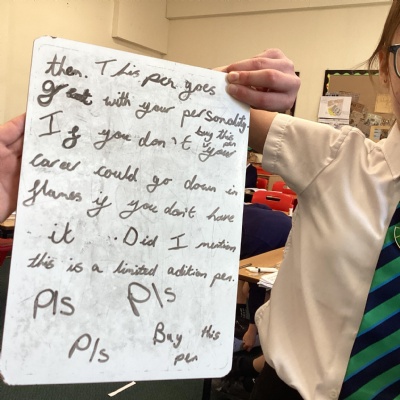 then. This pen goes
great with your personality.
If you don't buy this pen your
career could go down in
flames if you don't have
it ... Did I mention
this is a limited adition pen.
Pls Pls
Pls Buy this
pen